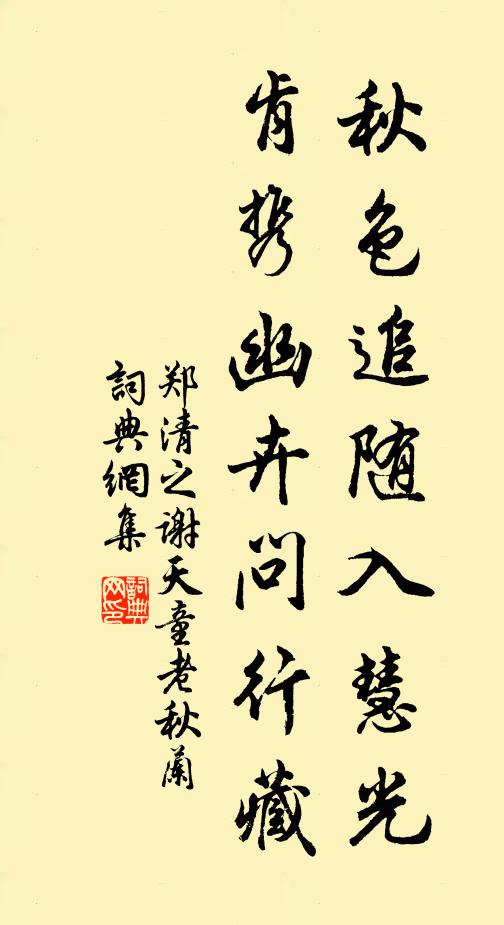 秋色追随入慧光
肯携幽卉问行藏
郑清之谢天童老秋蘭
詞典網集
詞典网印